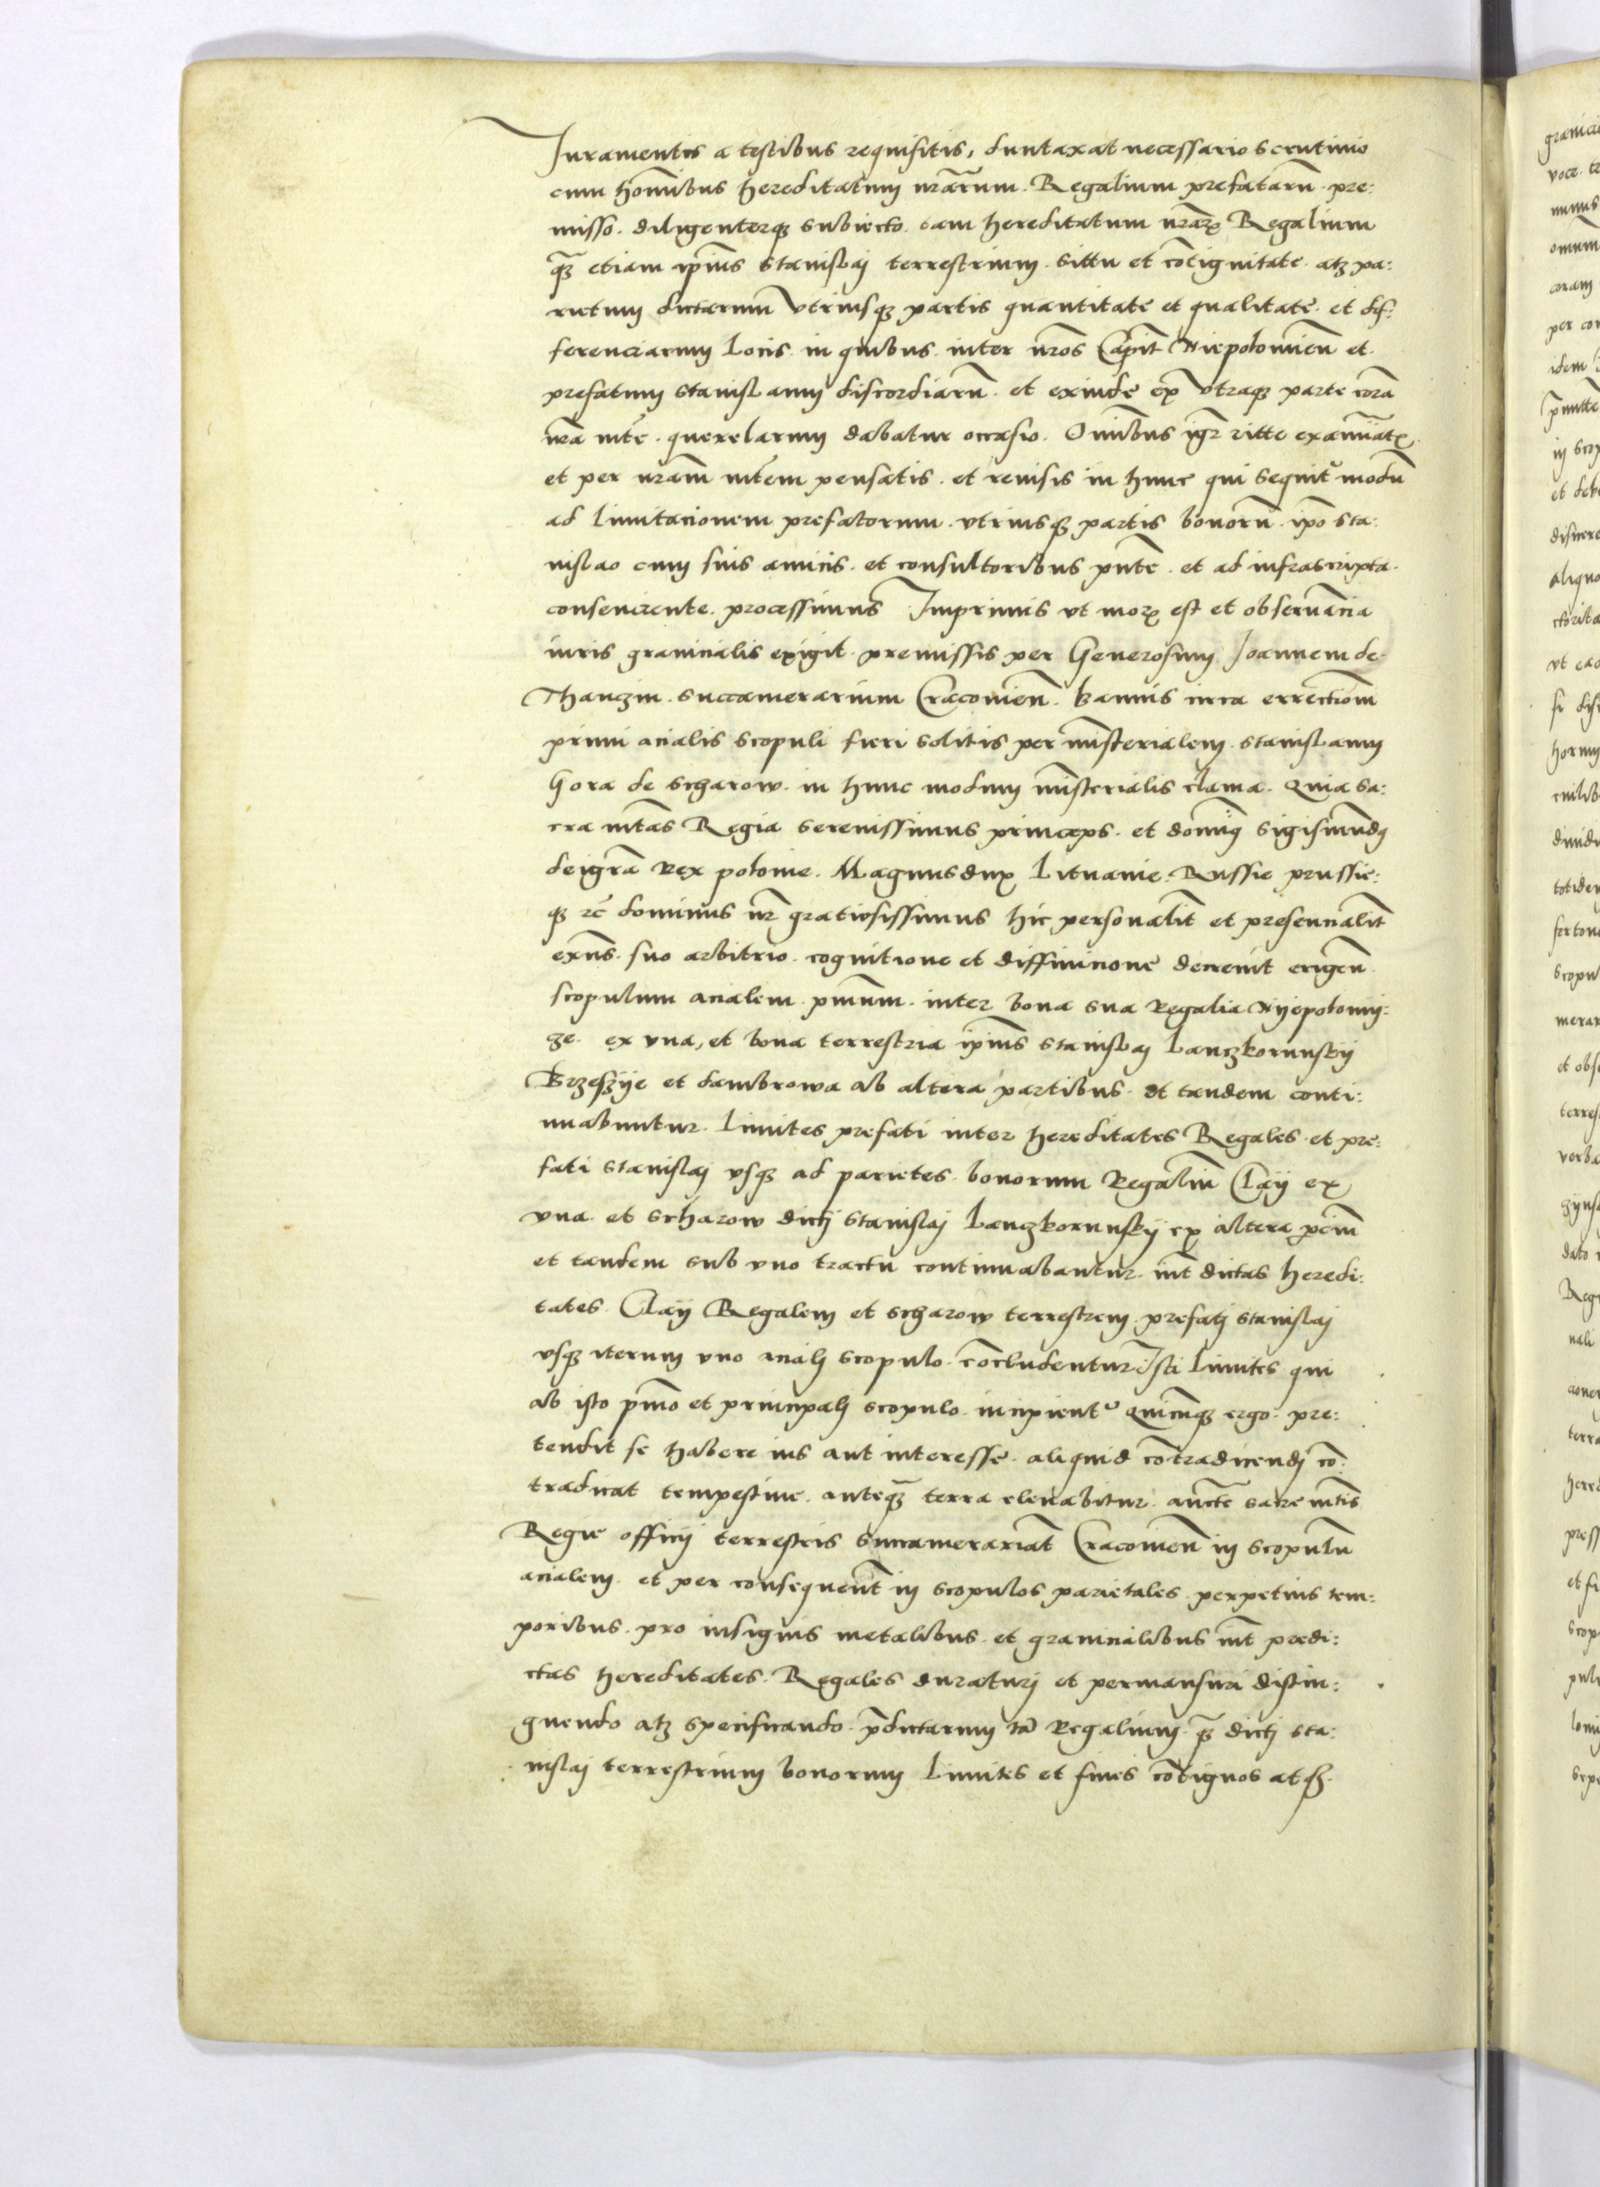 Juramentis a testibus requisitis, duntaxat necessario scrutinio
cum hoı̄bus hereditatum nrarum. Regalium prefatarū. pre:
misso. diligenterqȝ subiecto. tam hereditatum nrarꝝ Regalium
qȝ etiam ipiūs Stanislaj terrestrium. sittu et cōtiguitate. atqȝ pa:
rietum dictarum utriusqȝ partis quantitate et qualitate. et dif:
ferenciarum Locis. in quibus. inter nrōs Capit Niepolomieñ et.
prefatum Stanislaum discordiarū. et exinde ex utraqȝ parte corā
nrā mte. querelarum dabatur occasio. Omībus igr ritte examinatꝭ
et per nram mtem pensatis. et reuisis in hunc qui sequit modū
ad limitacionem prefatorum. utriusqȝ partis bonorū. ipo Sta:
nislao cum suis amicis. et consultoribus pnte. et ad infrascripta.
consenciente. processimus Imprimis ut morꝭ est et obseruancia
iuris granicialis exigit. premissis per Generosum Joannem de
Thanczin. succamerarium Cracouieñ. bannis circa errectiom
primi acialis scopuli fieri solitis per misterialem. Stanislaum
Gora de Scharow. in hunc modum misterialis clama. Quia Sa:
cra mtas Regia Serenissimus princeps. et domiq Sigismudq
dei gra Rex polonie. Magnus dux Lituanie. Russie prussie:
qȝ rc dominus nr gratiosissimus hic personalit et presencialit
exns. suo arbitrio. cognitione et diffinicione decreuit erigeñ
scopulum acialem pmum. inter bona sua Regalia Nyepolomy:
cze. ex una, et bona terrestria ipius Stanislaj Lanczkorunskij
Brzeszÿe et dambrowa ab altera partibus. et tandem conti:
nuabuntur. limites prefati inter hereditates Regales. et pre:
fati Stanislaj usqȝ ad parietes bonorum Regaliū Clay ex
una et Scharow dictj Stanislaj Lanczkorunskÿ ex altera pcim
et tandem sub uno tractu continuabantur. int dictas heredi:
tates. Clay Regalem et Scharow terrestrem. prefatj Stanislaj
usqȝ iterum uno acialj scopulo. cōcludentur Isti Limites qui
ab isto pmo et principalj scopulo. incipient Quicuqȝ ergo. pre:
tendit se habere ius aut interesse. aliquid cōtradicendj cō:
tradicat tempestiue. anteqȝ terra eleuabitur. aucte sacre mtis
Regie officij terrestris Succamerariat Cracouieñ in scopulū
acialem. et per consequent in scopulos parietales perpetuis tem:
poribus. pro insignis metalibus. et granicialibus int predi:
ctas hereditates. Regales duraturj et permansuri distin:
guendo atqȝ specificando. pdictarum tā Regalium. qȝ dictj Sta:
nislaj terrestrium bonorum Limites et fines cōtiguos atqȝ.